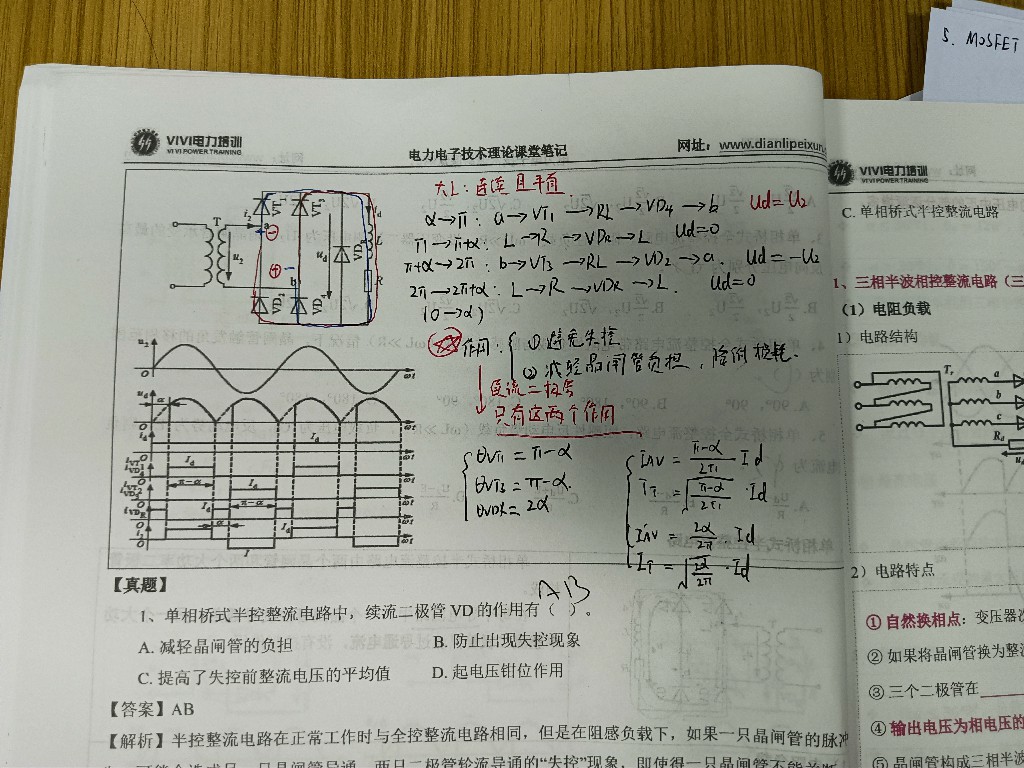 S. MOSFET
VIVI电力培训
VIVI POWER TRAINING
电力电子技术理论课堂笔记
网址：www.dianlipeixun
大L：连续且平直
α→π：a→VT1→RL→VD4→b Ud=U2
π→π+α：L→R→VDR→L Ud=0
π+α→2π：b→VT3→RL→VD2→a. Ud=-U2
2π→2π+α：L→R→VDR→L. Ud=0
(0→α)
作用：{①避免失控
②减轻晶闸管负担，降低损耗.
续流二极管
只有这两个作用
θVT1=π-α
θVT3=π-α.
θVDR=2α
IAV=π-α/2π·Id
IT=√π-α/2π·Id
IAV=2α/2π·Id
IT=√2α/2π·Id
T
i2
u2
a
b
ud
id
L
R
u2
O
ωt
ud
α
O
ωt
id
Id
O
ωt
Id
π-α
ωt
Id
π-α
ωt
Id
α
ωt
i2
O
Id
I
ωt
【真题】
AB
1、单相桥式半控整流电路中，续流二极管 VD 的作用有（ ）。
A. 减轻晶闸管的负担
B. 防止出现失控现象
C. 提高了失控前整流电压的平均值
D. 起电压钳位作用
【答案】AB
【解析】半控整流电路在正常工作时与全控整流电路相同，但是在阻感负载下，如果一只晶闸管的脉冲
VIVI电力培训
VIVI POWER TRAINING
C. 单相桥式半控整流电路
1、三相半波相控整流电路（三
（1）电阻负载
1）电路结构
Tr
a
b
c
Rd
2）电路特点
① 自然换相点：变压器次
② 如果将晶闸管换为整流
③ 三个二极管在
④ 输出电压为相电压的
⑤ 晶闸管构成三相半波